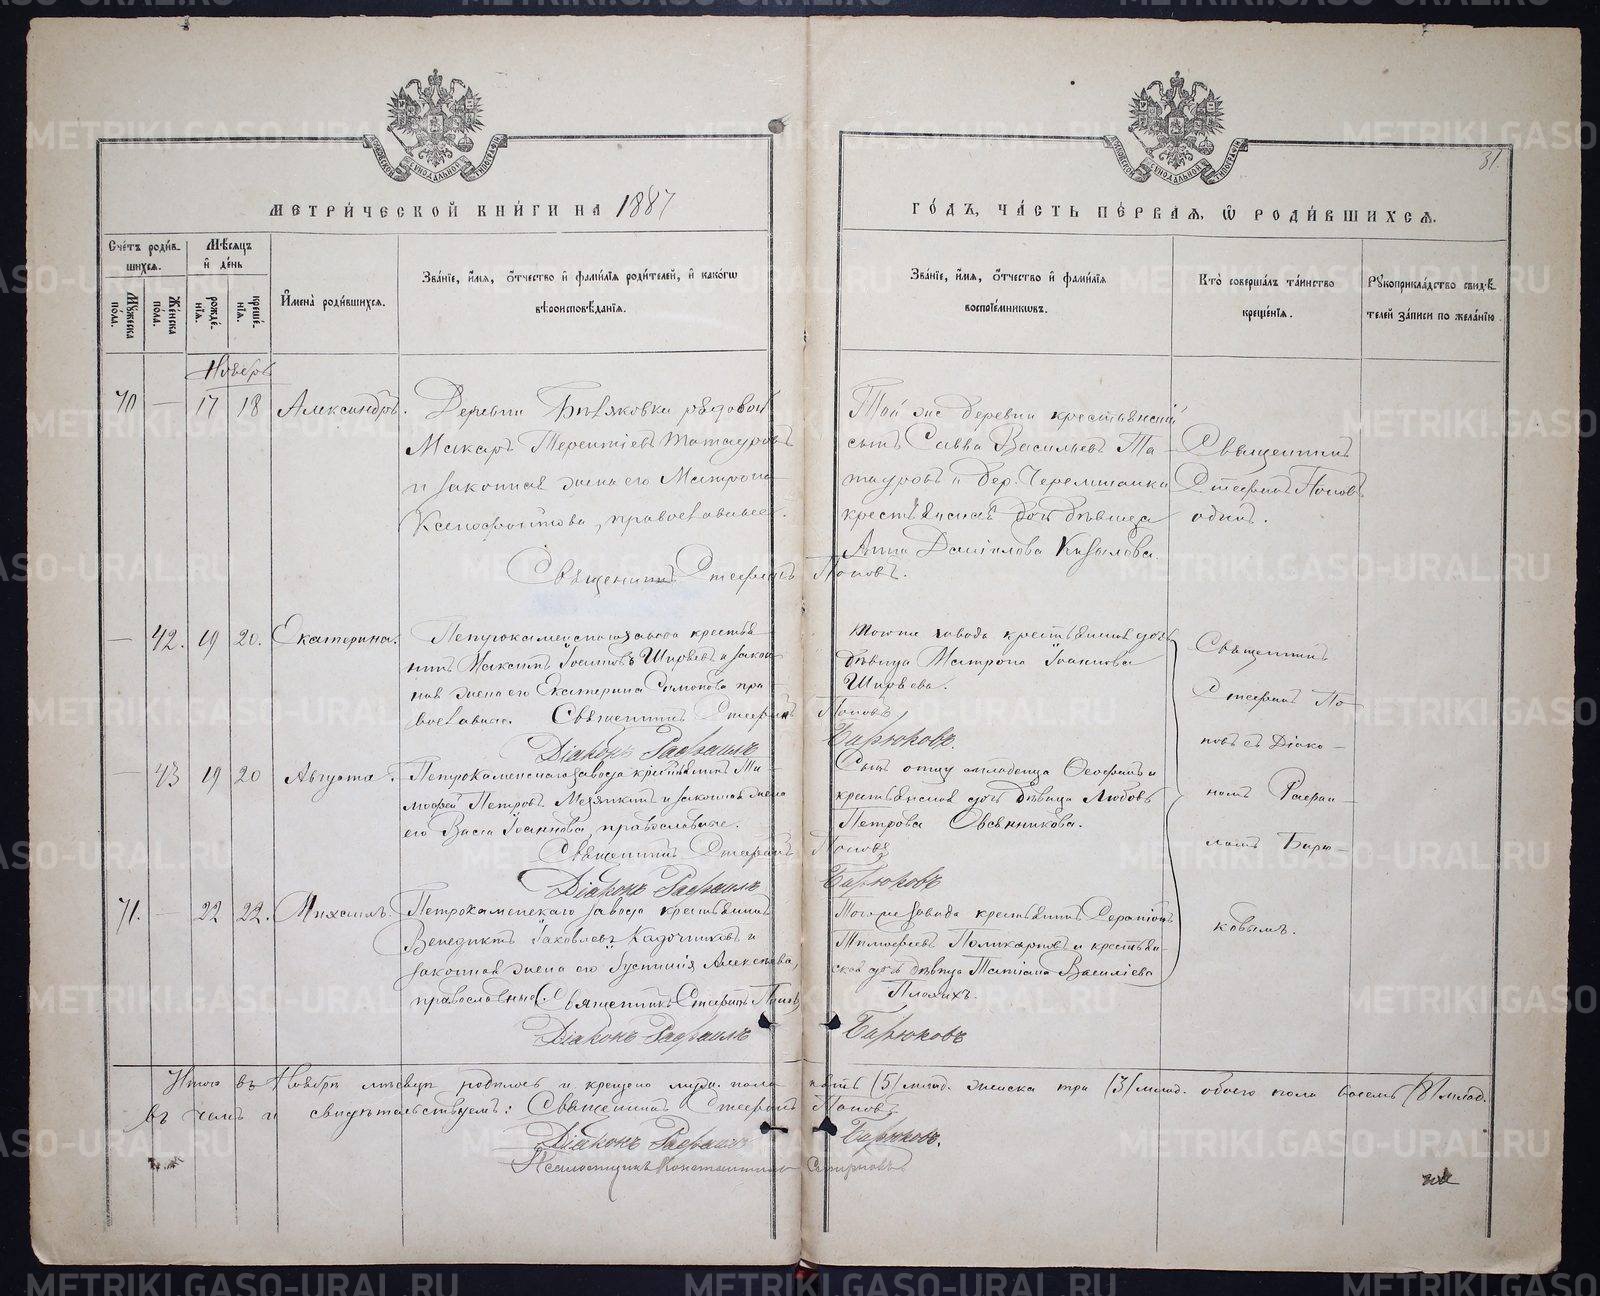 МЕТРИ́ЧЕСКОЙ КНИ́ГИ НА 1887
ГО́ДЪ, ЧА́СТЬ ПЕ́РВАЯ, Ѿ РОДИ́ВШИХСЯ.
31
Сче́тъ роди́в-
шихся.
Мѣ́сяцъ
и҆ де́нь
Му́жеска по́ла.
Же́нска по́ла.
рожде́нїя.
креще́нїя.
И҆мена̀ роди́вшихся.
Зва́нїе, и҆́мя, ѻ҆́тчество и҆ фами́лїя роди́телей, и҆ како́гѡ
вѣроисповѣ́данїя.
Зва́нїе, и҆́мя, ѻ҆́тчество и҆ фами́лїя
воспрїе́мникѡвъ.
Кто̀ соверша́лъ та́инство
креще́нїя.
Рꙋкоприкла́дство свидѣ́-
телей за́писи по жела́нїю.
Ноябрь
70 — 17 18 Александръ.
Деревни Бѣляковки рядовой
Макаръ Терентіевъ Татауровъ
и законная жена его Матрона
Ксенофонтова, православные.
Священникъ Стефанъ Поповъ.
Той же деревни крестьянскій
сынъ Савва Васильевъ Та-
тауровъ и дер. Черемшанки
крестьянская дочь дѣвица
Анна Даніилова
Священникъ
Стефанъ Поповъ
одинъ.
— 42. 19 20. Екатерина.
Петрокаменскаго завода крестья-
нинъ Максимъ Іоанновъ Ширяевъ и закон-
ная жена его Екатерина Симонова пра-
вославные. Священникъ Стефанъ Поповъ
Діаконъ Рафаилъ Бирюковъ.
Того же завода крестьянская дочь
дѣвица Матрона Іоаннова
Ширяева.
— 43 19 20 Августа.
Петрокаменскаго завода крестьянинъ Ти-
мофей Петровъ и законная жена
его Васса Іоаннова, православные.
Священникъ Стефанъ Поповъ
Діаконъ Рафаилъ Бирюковъ
Сынъ отцу младенца Феофанъ и
крестьянская дочь дѣвица Любовь
Петрова Овсянникова.
71. — 22 22. Михаилъ.
Петрокаменскаго завода крестьянинъ
Венедиктъ Іаковлевъ Кадочниковъ и
законная жена его Іустинія Алексѣева,
православные. Священникъ Стефанъ Поповъ
Діаконъ Рафаилъ Бирюковъ
Того же завода крестьянинъ Серапіонъ
Тимофеевъ Поликарповъ и крестьян-
ская дочь дѣвица Татіана Василіева
Плохихъ.
Священникъ
Стефанъ По-
повъ съ Діако-
номъ Рафаи-
ломъ Бирю-
ковымъ.
Итого въ Ноябрѣ мѣсяцѣ родилось и крещено муж. пола пять (5) млад. женска три (3) млад. обоего пола восемь (8) млад.
въ чемъ и свидѣтельствуемъ: Священникъ Стефанъ Поповъ
Діаконъ Рафаилъ Бирюковъ.
Псаломщикъ Константинъ Смирновъ
METRIKI.GASO-URAL.RU